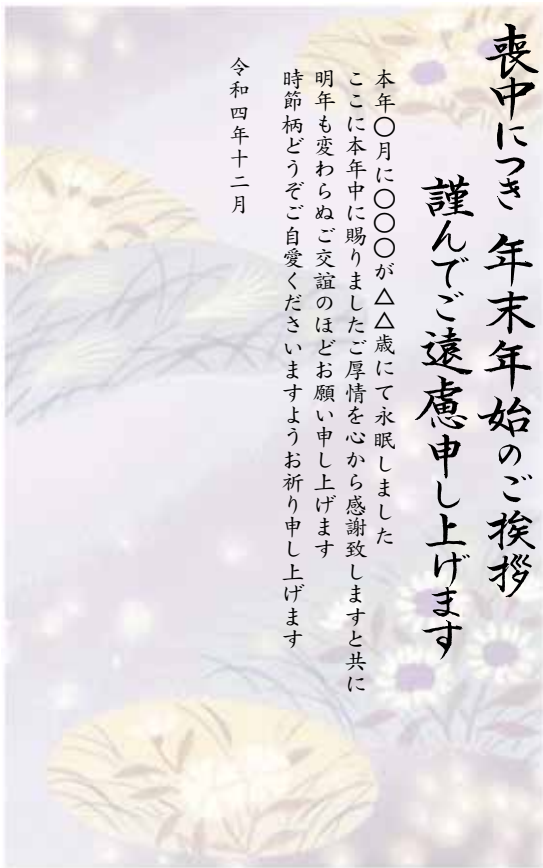 喪中につき 年末年始のご挨拶
謹んでご遠慮申し上げます
本年〇月に〇〇〇が△△歳にて永眠しました
ここに本年中に賜りましたご厚情を心から感謝致しますと共に
明年も変わらぬご交誼のほどお願い申し上げます
時節柄どうぞご自愛くださいますようお祈り申し上げます
令和四年十二月